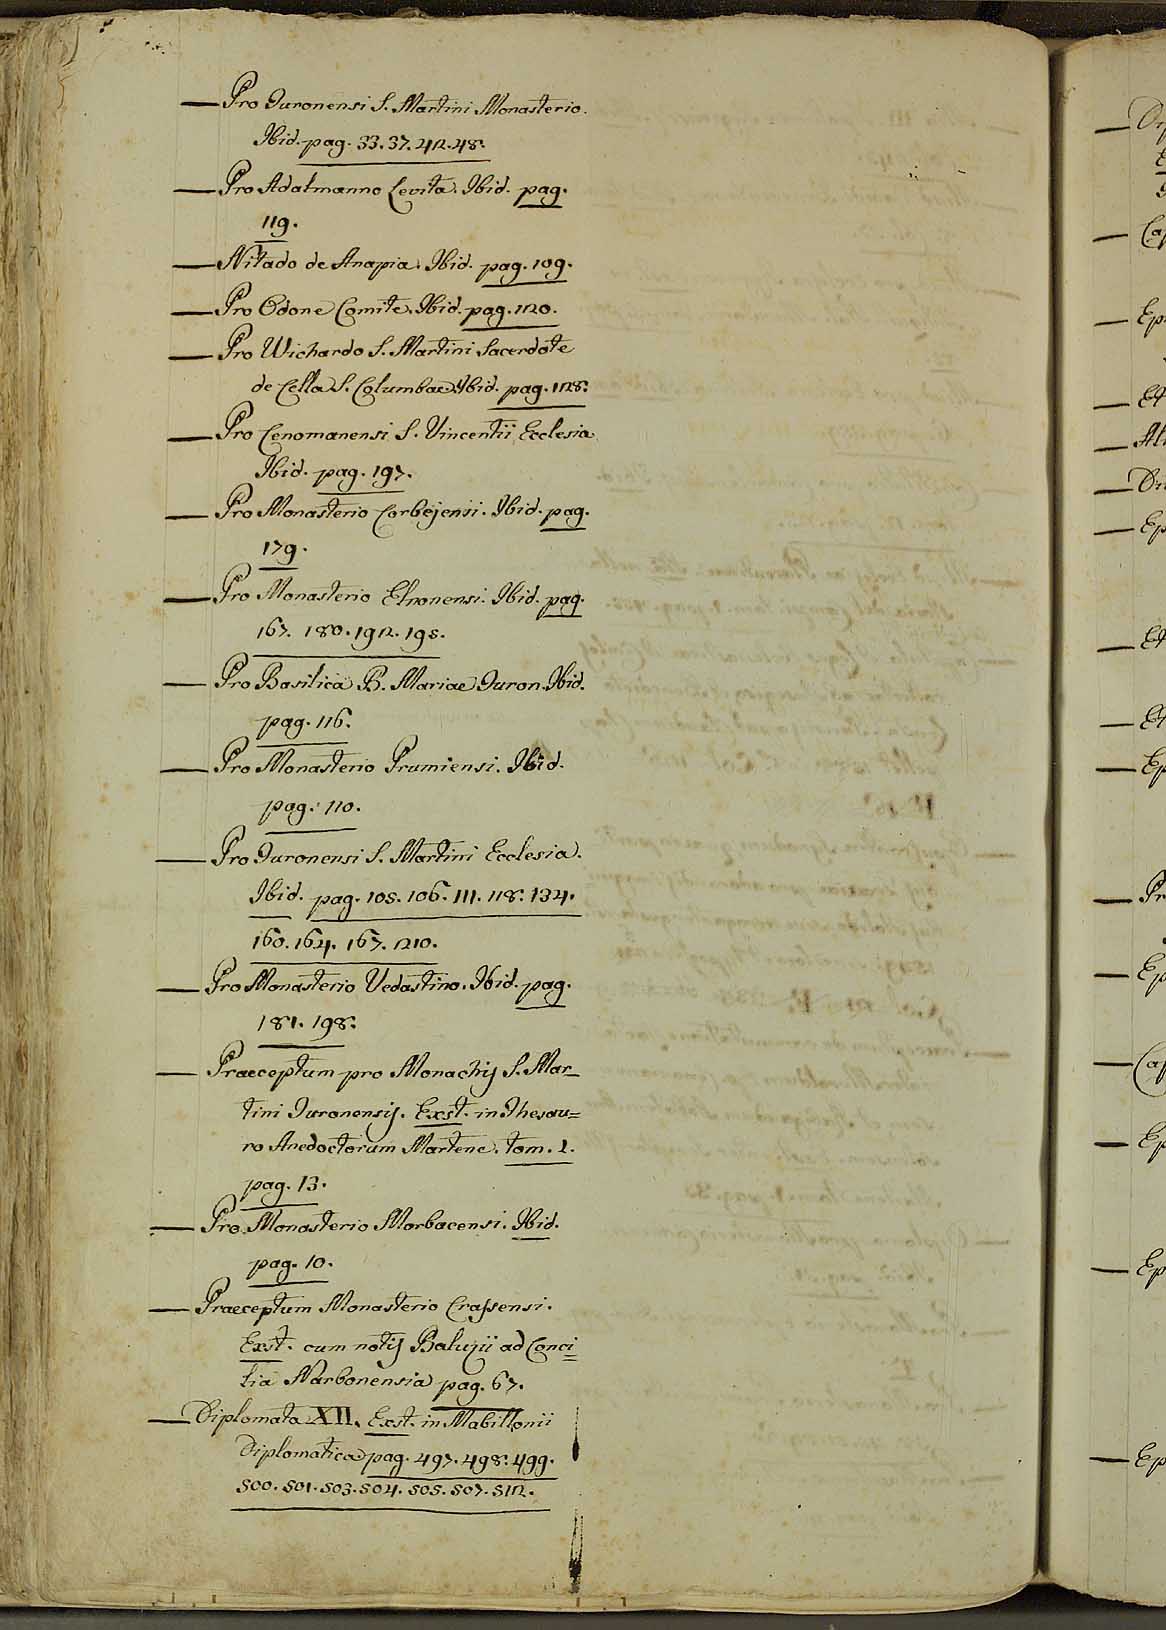 — Pro Turonensi S. Martini Monasterio.
Ibid. pag. 33. 37. 42. 48.
— Pro Adalmanno Levita. Ibid. pag.
119.
— Nitado de Anapia. Ibid. pag. 109.
— Pro Odone Comite. Ibid. pag. 120.
— Pro Wichardo S. Martini Sacerdote
de Cella S. Columbae. Ibid. pag. 128.
— Pro Cenomanensi S. Vincentii Ecclesia
Ibid. pag. 197.
— Pro Monasterio Corbejensi. Ibid. pag.
179.
— Pro Monasterio Elnonensi. Ibid. pag.
167. 180. 192. 195.
— Pro Basilica B. Mariae Turon. Ibid.
pag. 116.
— Pro Monasterio Prumiensi. Ibid.
pag. 110.
— Pro Turonensi S. Martini Ecclesia.
Ibid. pag. 105. 106. 111. 118. 134.
160. 164. 167. 210.
— Pro Monasterio Vedastino. Ibid. pag.
181. 198.
— Praeceptum pro Monachis S. Mar_
tini Turonensis. Exst. in Thesau=
ro Anedoctorum Martene. tom. 1.
pag. 13.
— Pro Monasterio Morbacensi. Ibid.
pag. 10.
— Praeceptum Monasterio Crassensi.
Exst. cum notis Baluzii ad Conci=
lia Narbonensia pag. 67.
— Diplomata XII. Exst. in Mabillonii
Diplomatica pag. 497. 498. 499.
500. 501. 503. 504. 505. 507. 512.